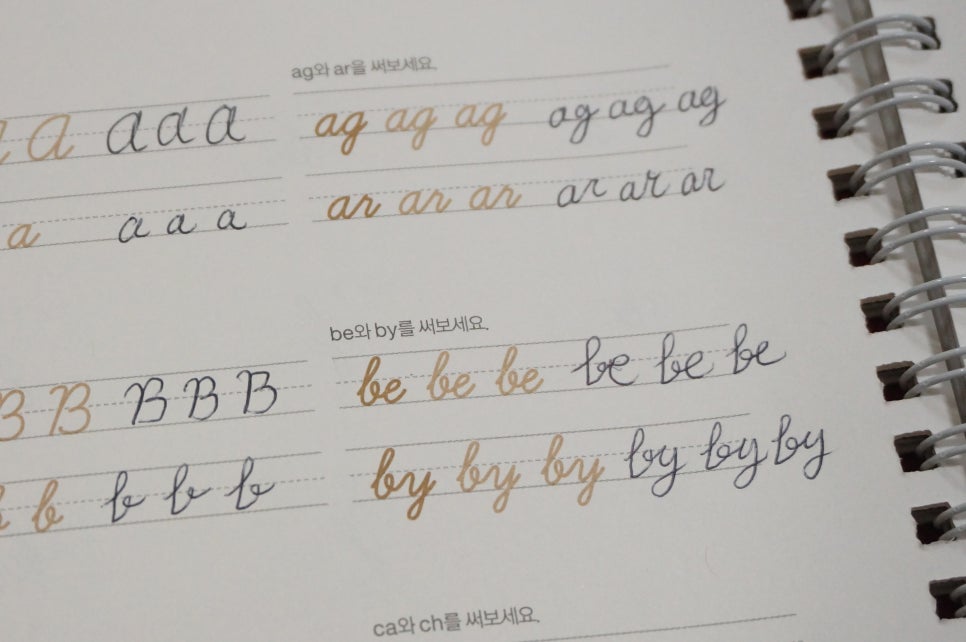 a a a a
ag와 ar을 써보세요.
ag ag ag ag ag ag
a a a a
ar ar ar ar ar ar
B B B B B
be와 by를 써보세요.
be be be be be be
b b b b
by by by by by by
ca와 ch를 써보세요.